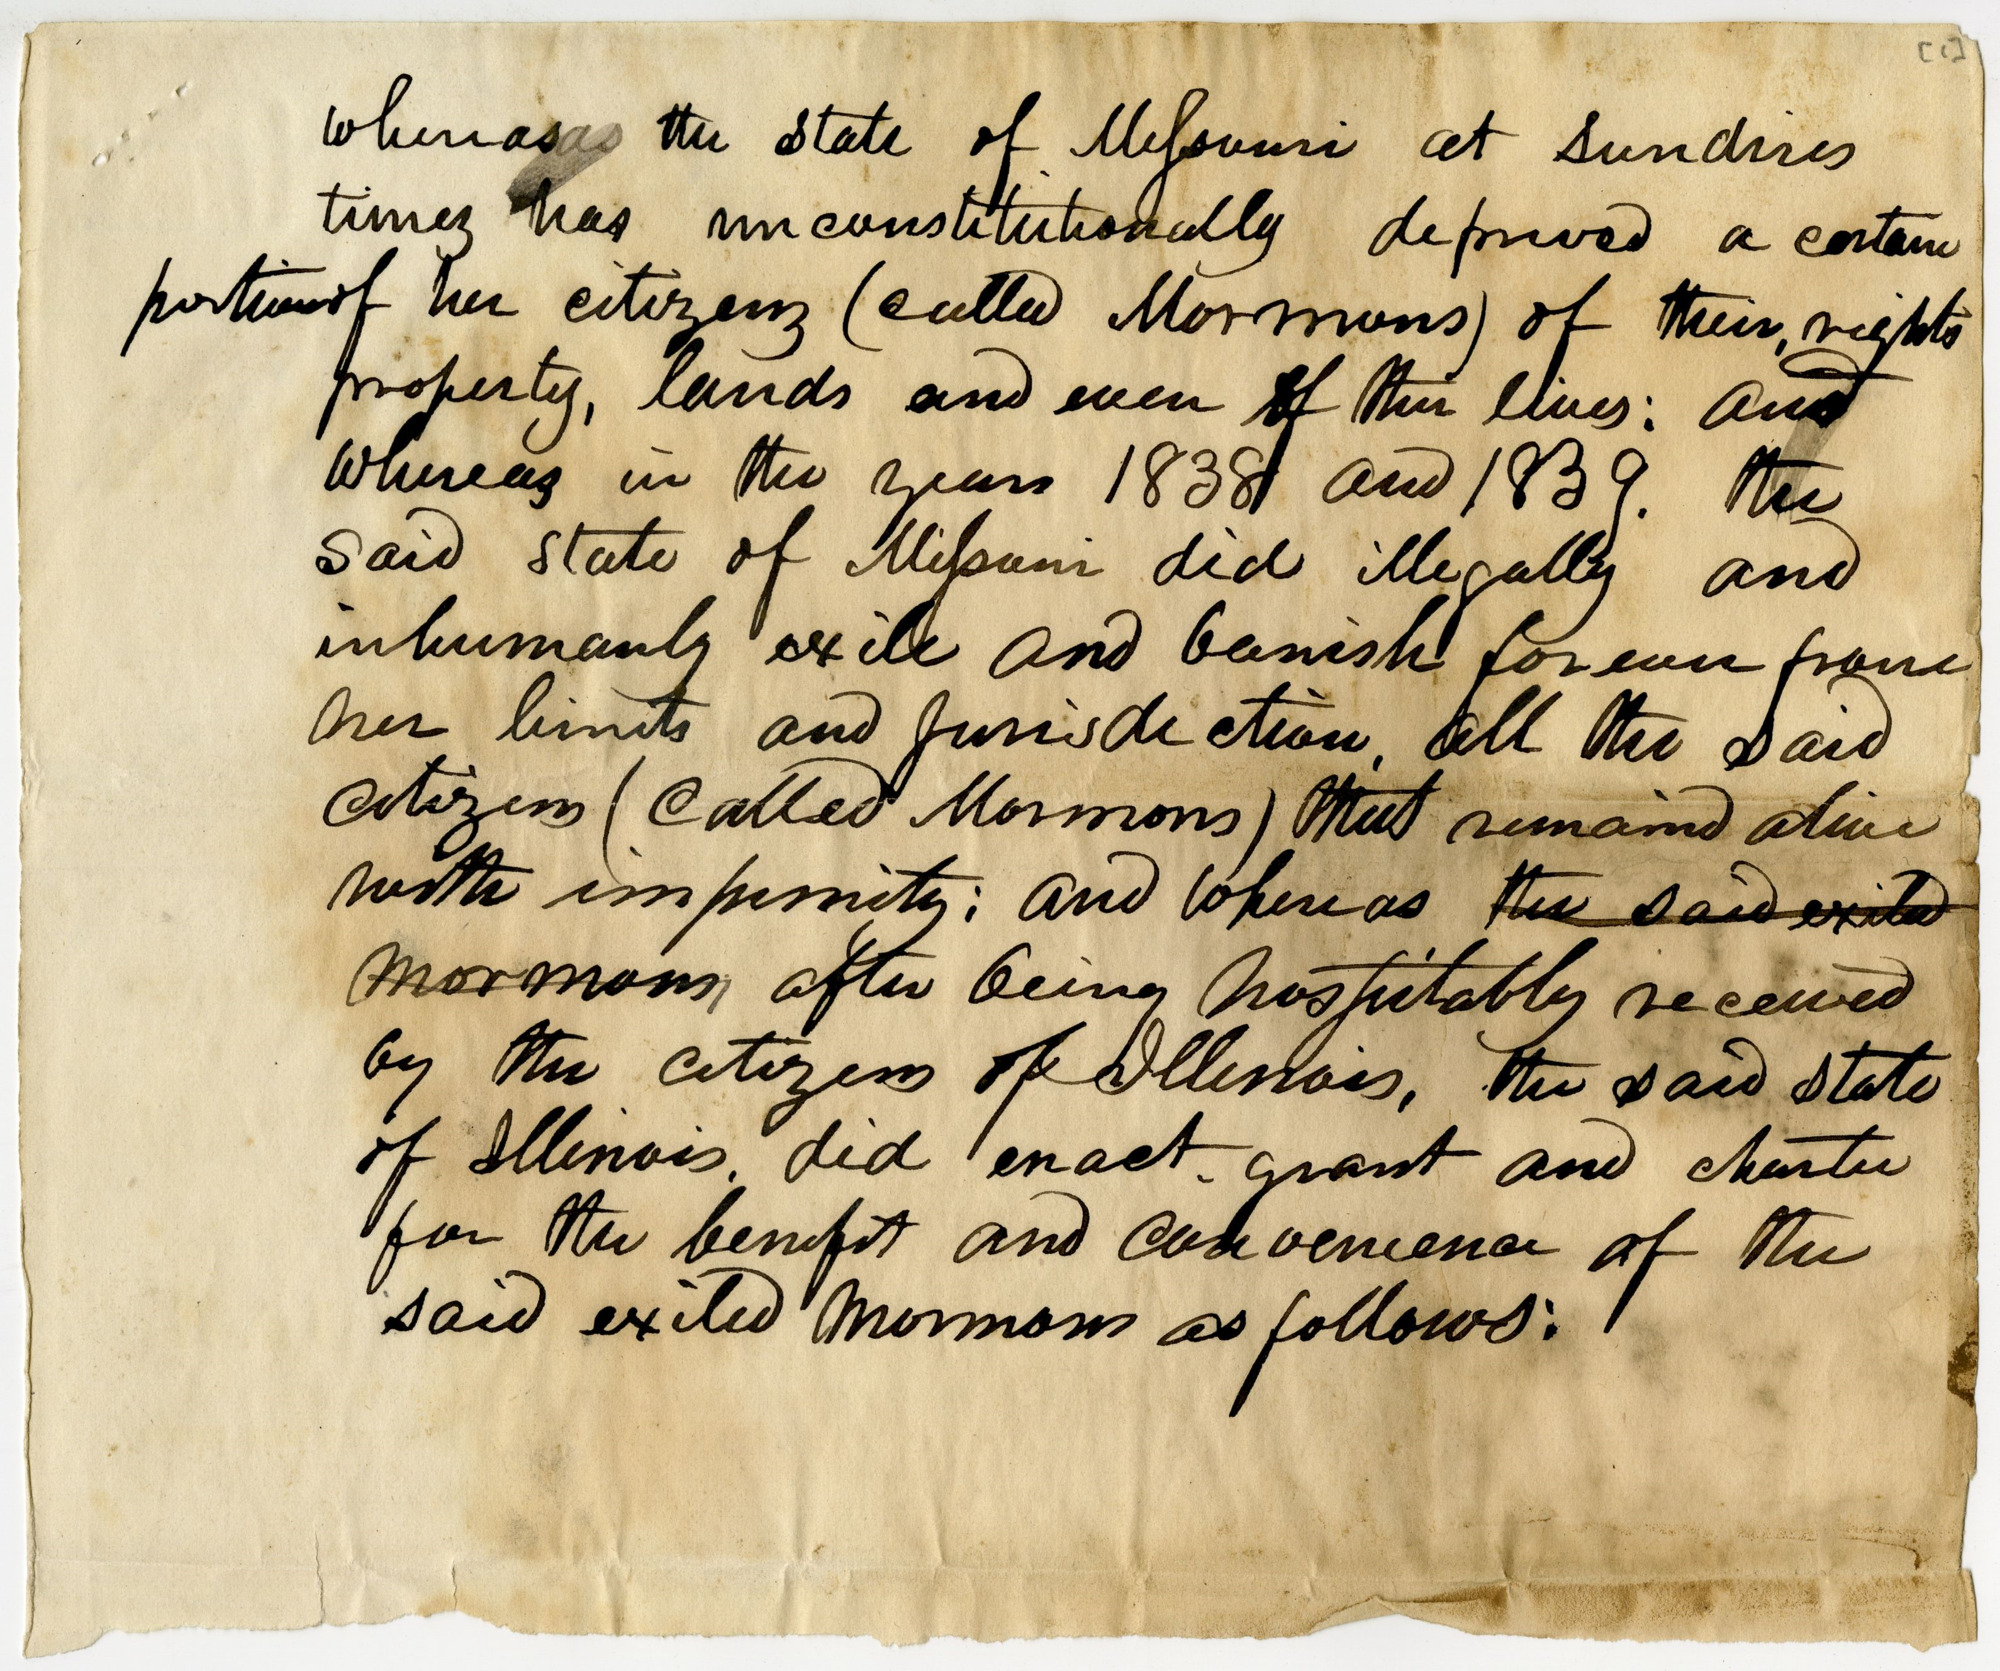 [1]
whereas the state of Missouri at sundries
times has unconstitutionally deprived a certain
portion of her citizens (called Mormons) of their, rights
property, lands and even of their lives: and
whereas in the years 1838 and 1839. the
said state of Missouri did illegally and
inhumanly exile and banish forever from
her limits and jurisdiction, all the said
citizens (called Mormons) that remaind alive
with impunity: and whereas the said exiled
mormons, after being hospitably received
by the citizens of Illinois, the said state
of Illinois, did enact - grant and charter
for the benefit and convenience of the
said exiled Mormons as follows: